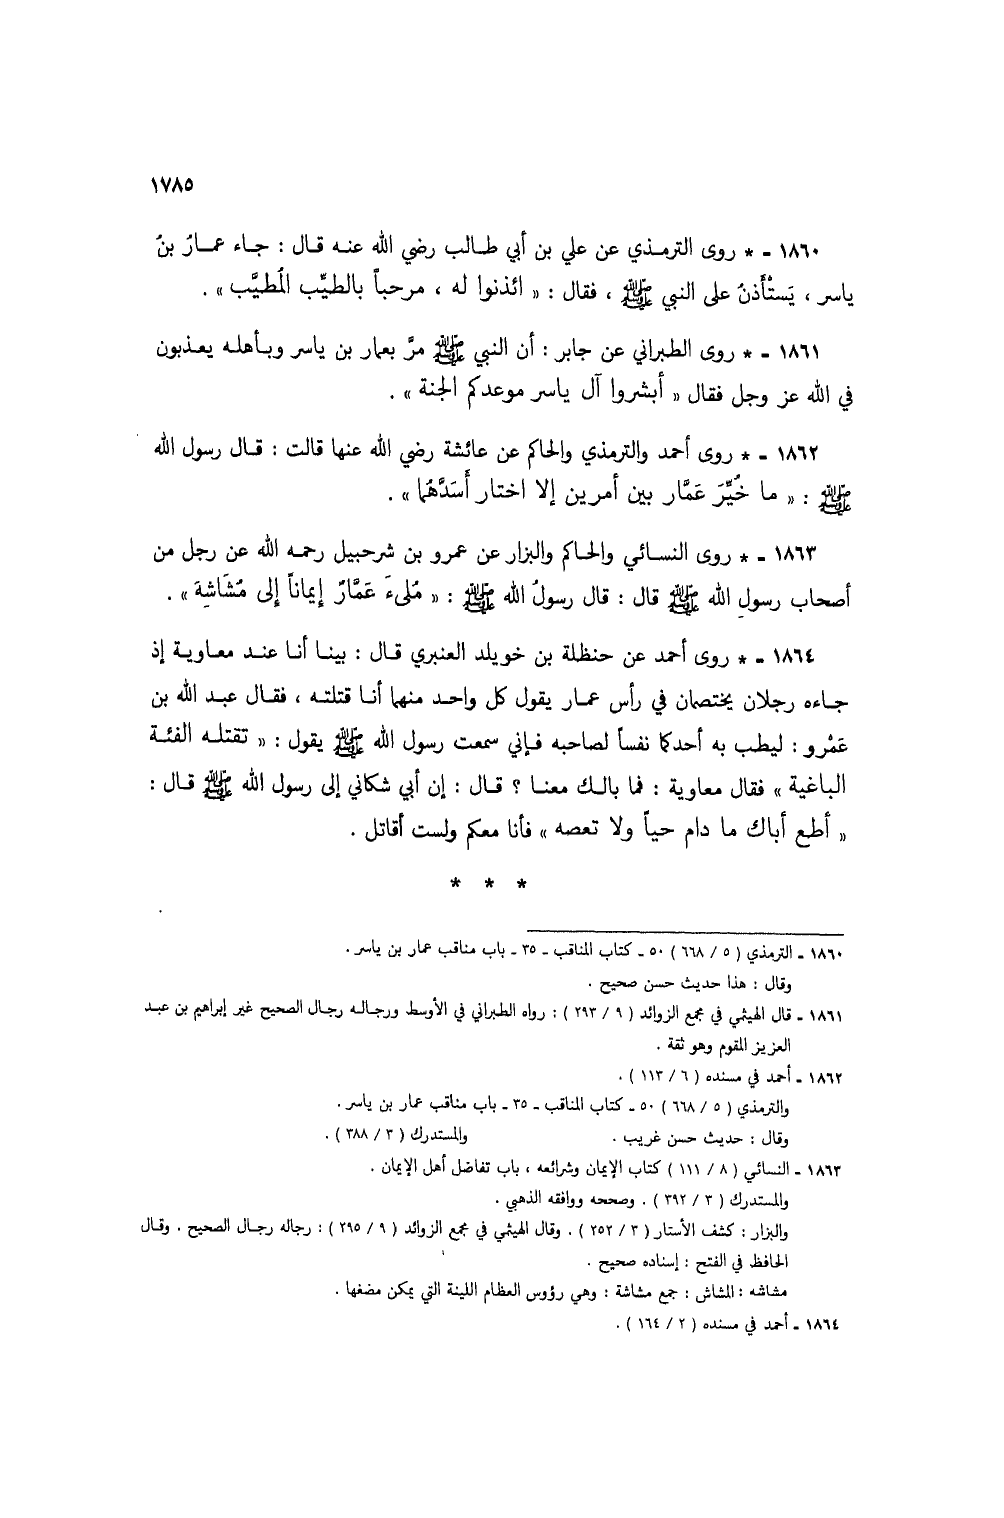 ١٧٨٥
١٨٦٠ - * روى الترمـذي عن علي بن أبي طـالب رضي الله عنـه قـال : جـاء عمـارُ بنُ
ياسر ، يَستْأَذنُ على النبي ﷺ ، فقال : « ائذنوا له ، مرحباً بالطيِّب المُطيَّب » .
١٨٦١ - * روى الطبراني عن جابر : أن النبي ﷺ مرَّ بعمار بن ياسر وبـأهلـه يعـذبون
في الله عز وجل فقال « أبشروا آل ياسر موعدكم الجنة » .
١٨٦٢ - * روى أحمد والترمذي والحاكم عن عائشة رضي الله عنها قالت : قـال رسول الله
ﷺ : « ما خُيِّرَ عَمَّار بين أمرين إلا اختار أَسَدَّهُما » .
١٨٦٣ - * روى النسـائي والحاكم والبزار عن عمرو بن شرحبيل رحمـه الله عن رجل من
أصحاب رسولِ الله ﷺ قال : قال رسولُ الله ﷺ : « مُلىءَ عَمَّارٌ إيماناً إلى مُشَاشهِ » .
١٨٦٤ - * روى أحمد عن حنظلة بن خويلد العنبري قـال : بينـا أنا عنـد معاويـة إذ
جـاءه رجلان يختصمان في رأس عمـار يقول كل واحـد منهما أنـا قتلتـه ، فقـال عبـد الله بن
عَمْرو : ليطب به أحدكما نفساً لصاحبه فـإني سمعت رسول الله ﷺ يقول : « تقتلـه الفئـة
الباغية » فقال معاوية : فما بالـك معنـا ؟ قـال : إن أبي شكاني إلى رسول الله ﷺ قـال :
« أطع أباك ما دام حياً ولا تعصه » فأنا معكم ولست أقاتل .
* * *
١٨٦٠ - الترمذي ( ٥ / ٦٦٨ ) ٥٠ - كتاب المناقب - ٣٥ - باب مناقب عمار بن ياسر .
وقال : هذا حديث حسن صحيح .
١٨٦١ - قال الهيثمي في مجمع الزوائد ( ٩ / ٢٩٣ ) : رواه الطبراني في الأوسط ورجـالـه رجـال الصحيح غير إبراهيم بن عبـد
العزيز المقوم وهو ثقة .
١٨٦٢ - أحمد في مسنده ( ٦ / ١١٣ ) .
والترمذي ( ٥ / ٦٦٨ ) ٥٠ - كتاب المناقب - ٣٥ - باب مناقب عمار بن ياسر .
وقال : حديث حسن غريب . والمستدرك ( ٣ / ٣٨٨ ) .
١٨٦٣ - النسائي ( ٨ / ١١١ ) كتاب الإيمان وشرائعه ، باب تفاضل أهل الإيمان .
والمستدرك ( ٣ / ٣٩٢ ) . وصححه ووافقه الذهبي .
والبزار : كشف الأستار ( ٣ / ٢٥٢ ) . وقال الهيثمي في مجمع الزوائد ( ٩ / ٢٩٥ ) : رجاله رجـال الصحيح . وقـال
الحافظ في الفتح : إسناده صحيح .
مشاشه : المُشاش : جمع مشاشة : وهي رؤوس العظام اللينة التي يمكن مضغها .
١٨٦٤ - أحمد في مسنده ( ٢ / ١٦٤ ) .